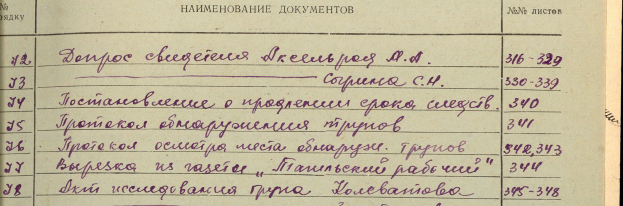 № рядку НАИМЕНОВАНИЕ ДОКУМЕНТОВ №№ листов
72 Допрос свидетеля Аксельрод М.А. 316-329
73 Согрина С.Н. 330-339
74 Постановление о продлении срока следств. 340
75 Протокол обнаружения трупов 341
76 Протокол осмотра места обнаруж. трупов 342, 343
77 Вырезка из газеты „Тагильский рабочий" 344
78 Акт исследования трупа Колеватова 345-348